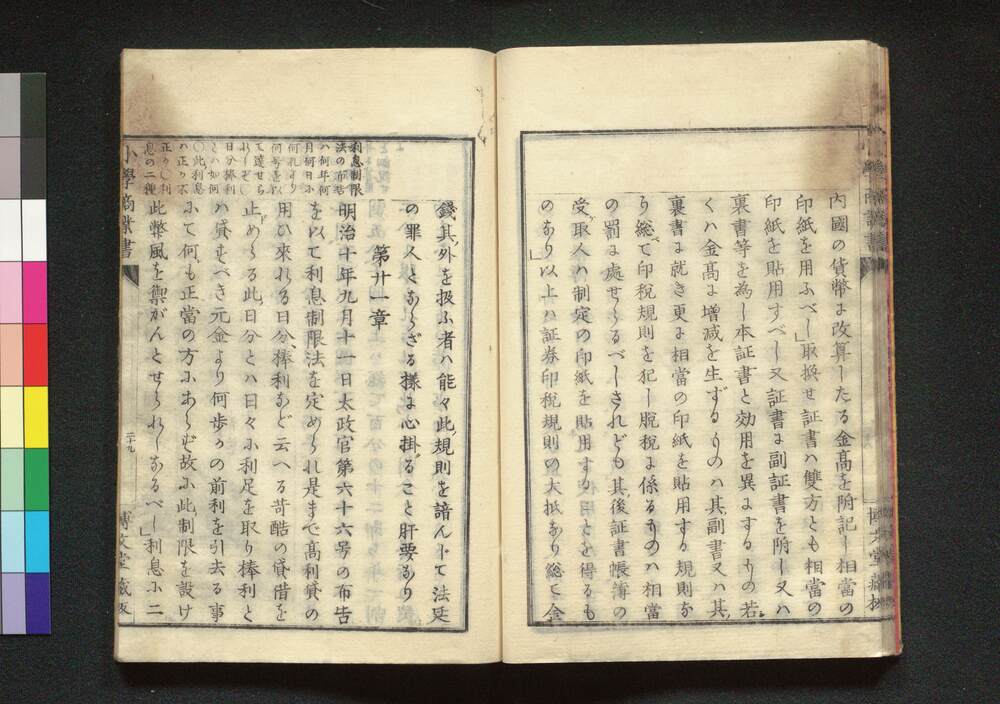 內國の貨幣ニ改算したる金高を附記し相當の
印紙を用ふべし」取換せ証書ハ雙方とも相當の
印紙を貼用すべし又証書ニ副証書を附し又ハ
裏書等を為し本証書と効用を異ニするもの若
くハ金高ニ增減を生ずるものハ其副書又ハ其
裏書ニ就き更ニ相當の印紙を貼用する規則な
り総て印税規則を犯し脱税ニ係るものハ相當
の罰ニ處せらるべしされども其後証書帳簿の
受取人ハ制定の印紙を貼用すれバ用とを得るも
のなり以上ハ証券印税規則の大抵なり総て金
博文堂藏板
錢其外を扱ふ者ハ能々此規則を諳んじて法廷
の罪人とならざる樣ニ心掛ること肝要なり
第廿一章
明治十年九月十一日太政官第六十六号の布告
を以て利息制限法を定められ是まで高利貸の
用ひ來れる日分、捧利など云へる苛酷の貸借を
止めらる此日分とハ日々に利足を取り捧利と
ハ貸すべき元金より何步かの前利を引去る事
にて何れも正當の方にあらず故に此制限を設け
此弊風を禦がんとせられしなるべし」利息に二
利息制限
法の布告
ハ何年何
月何日に
何れより
何号を以
て達せら
れしぞ
日分捧利
とハ如何
〇此利息
ハ正りに
正からし利
息の二種
小學商業書
二十九
博文堂藏板